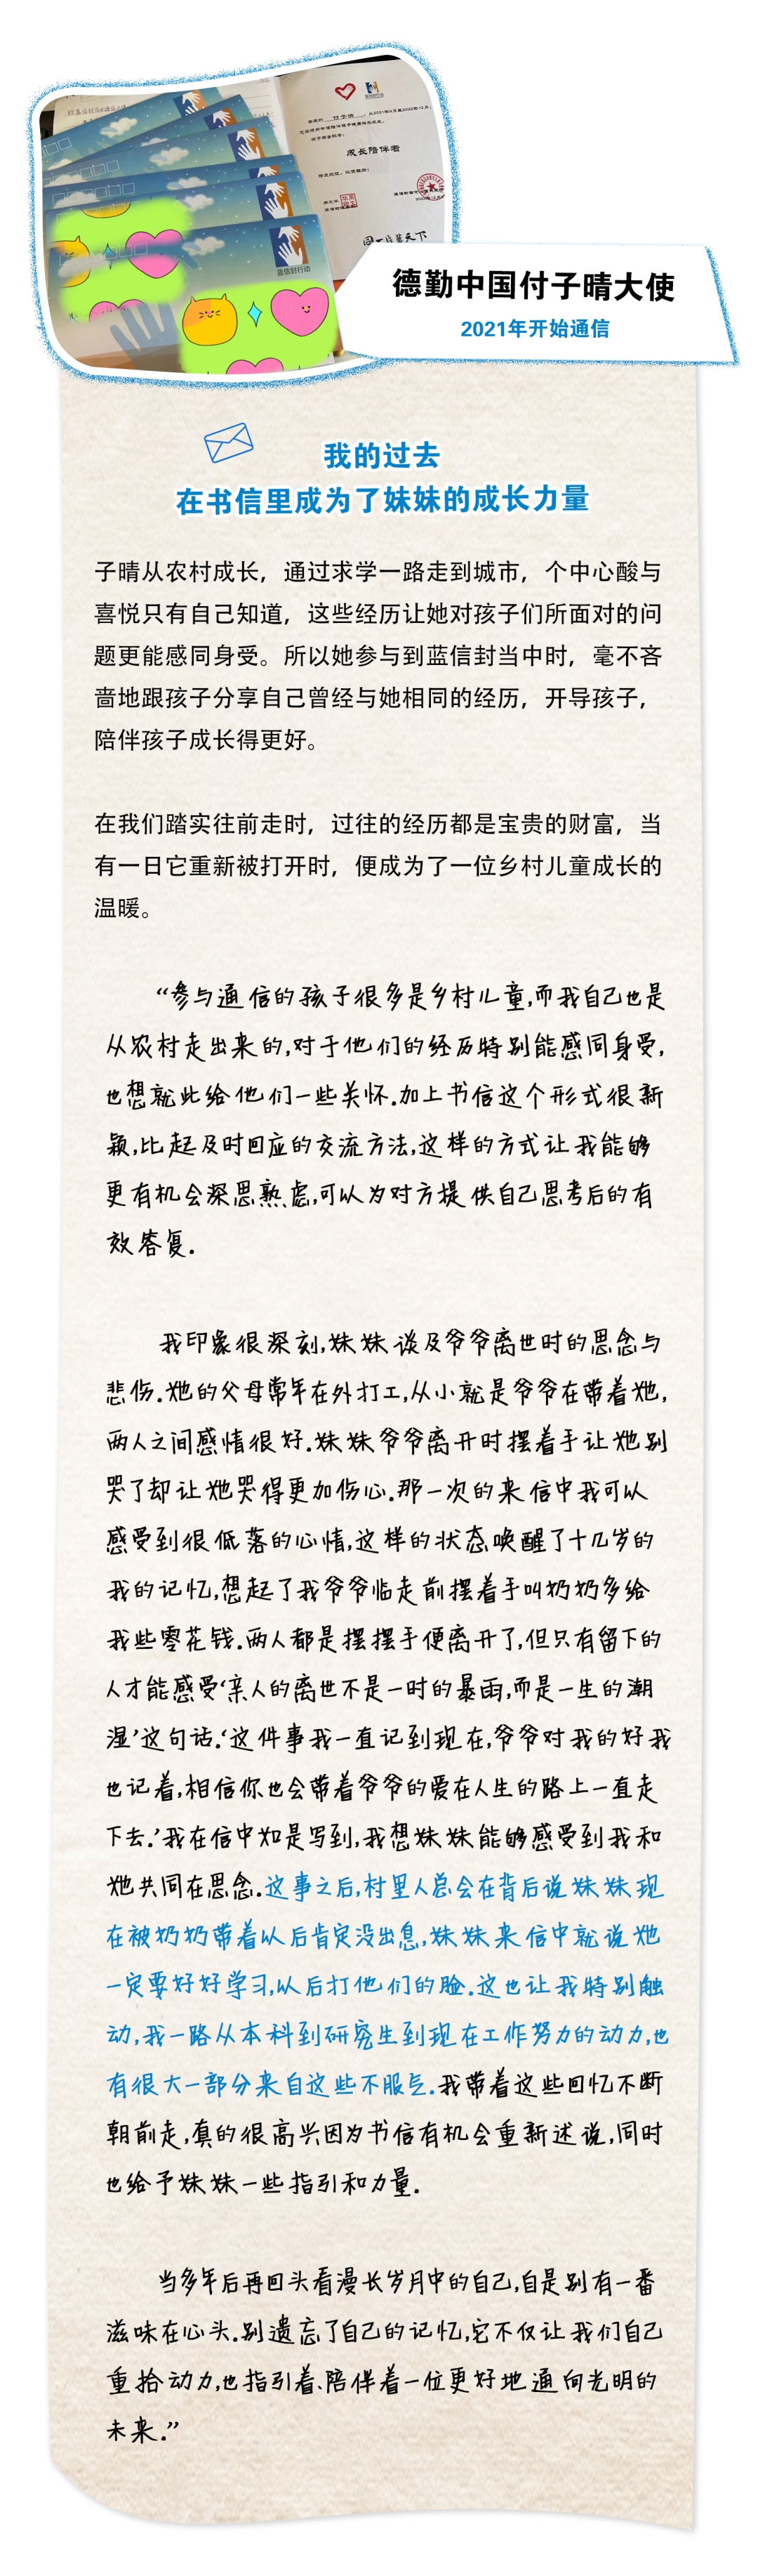 蓝信封行动
成长陪伴者
德勤中国付子晴大使
2021年开始通信
我的过去
在书信里成为了妹妹的成长力量
子晴从农村成长，通过求学一路走到城市，个中心酸与
喜悦只有自己知道，这些经历让她对孩子们所面对的问
题更能感同身受。所以她参与到蓝信封当中时，毫不吝
啬地跟孩子分享自己曾经与她相同的经历，开导孩子，
陪伴孩子成长得更好。
在我们踏实往前走时，过往的经历都是宝贵的财富，当
有一日它重新被打开时，便成为了一位乡村儿童成长的
温暖。
“参与通信的孩子很多是乡村儿童,而我自己也是
从农村走出来的,对于他们的经历特别能感同身受,
也想就此给他们一些关怀.加上书信这个形式很新
颖,比起及时回应的交流方法,这样的方式让我能够
更有机会深思熟虑,可以为对方提供自己思考后的有
效答复.
我印象很深刻,妹妹谈及爷爷离世时的思念与
悲伤.她的父母常年在外打工,从小就是爷爷在带着她,
两人之间感情很好.妹妹爷爷离开时摆着手让她别
哭了却让她哭得更加伤心.那一次的来信中我可以
感受到很低落的心情,这样的状态唤醒了十几岁的
我的记忆,想起了我爷爷临走前摆着手叫奶奶多给
我些零花钱.两人都是摆摆手便离开了,但只有留下的
人才能感受‘亲人的离世不是一时的暴雨,而是一生的潮
湿’这句话.‘这件事我一直记到现在,爷爷对我的好我
也记着,相信你也会带着爷爷的爱在人生的路上一直走
下去.’我在信中如是写到,我想妹妹能够感受到我和
她共同在思念.这事之后,村里人总会在背后说妹妹现
在被奶奶带着以后肯定没出息,妹妹来信中就说她
一定要好好学习,以后打他们的脸.这也让我特别触
动,我一路从本科到研究生到现在工作努力的动力,也
有很大一部分来自这些不服气.我带着这些回忆不断
朝前走,真的很高兴因为书信有机会重新述说,同时
也给予妹妹一些指引和力量.
当多年后再回头看漫长岁月中的自己,自是别有一番
滋味在心头.别遗忘了自己的记忆,它不仅让我们自己
重拾动力,也指引着、陪伴着一位更好地通向光明的
未来.”